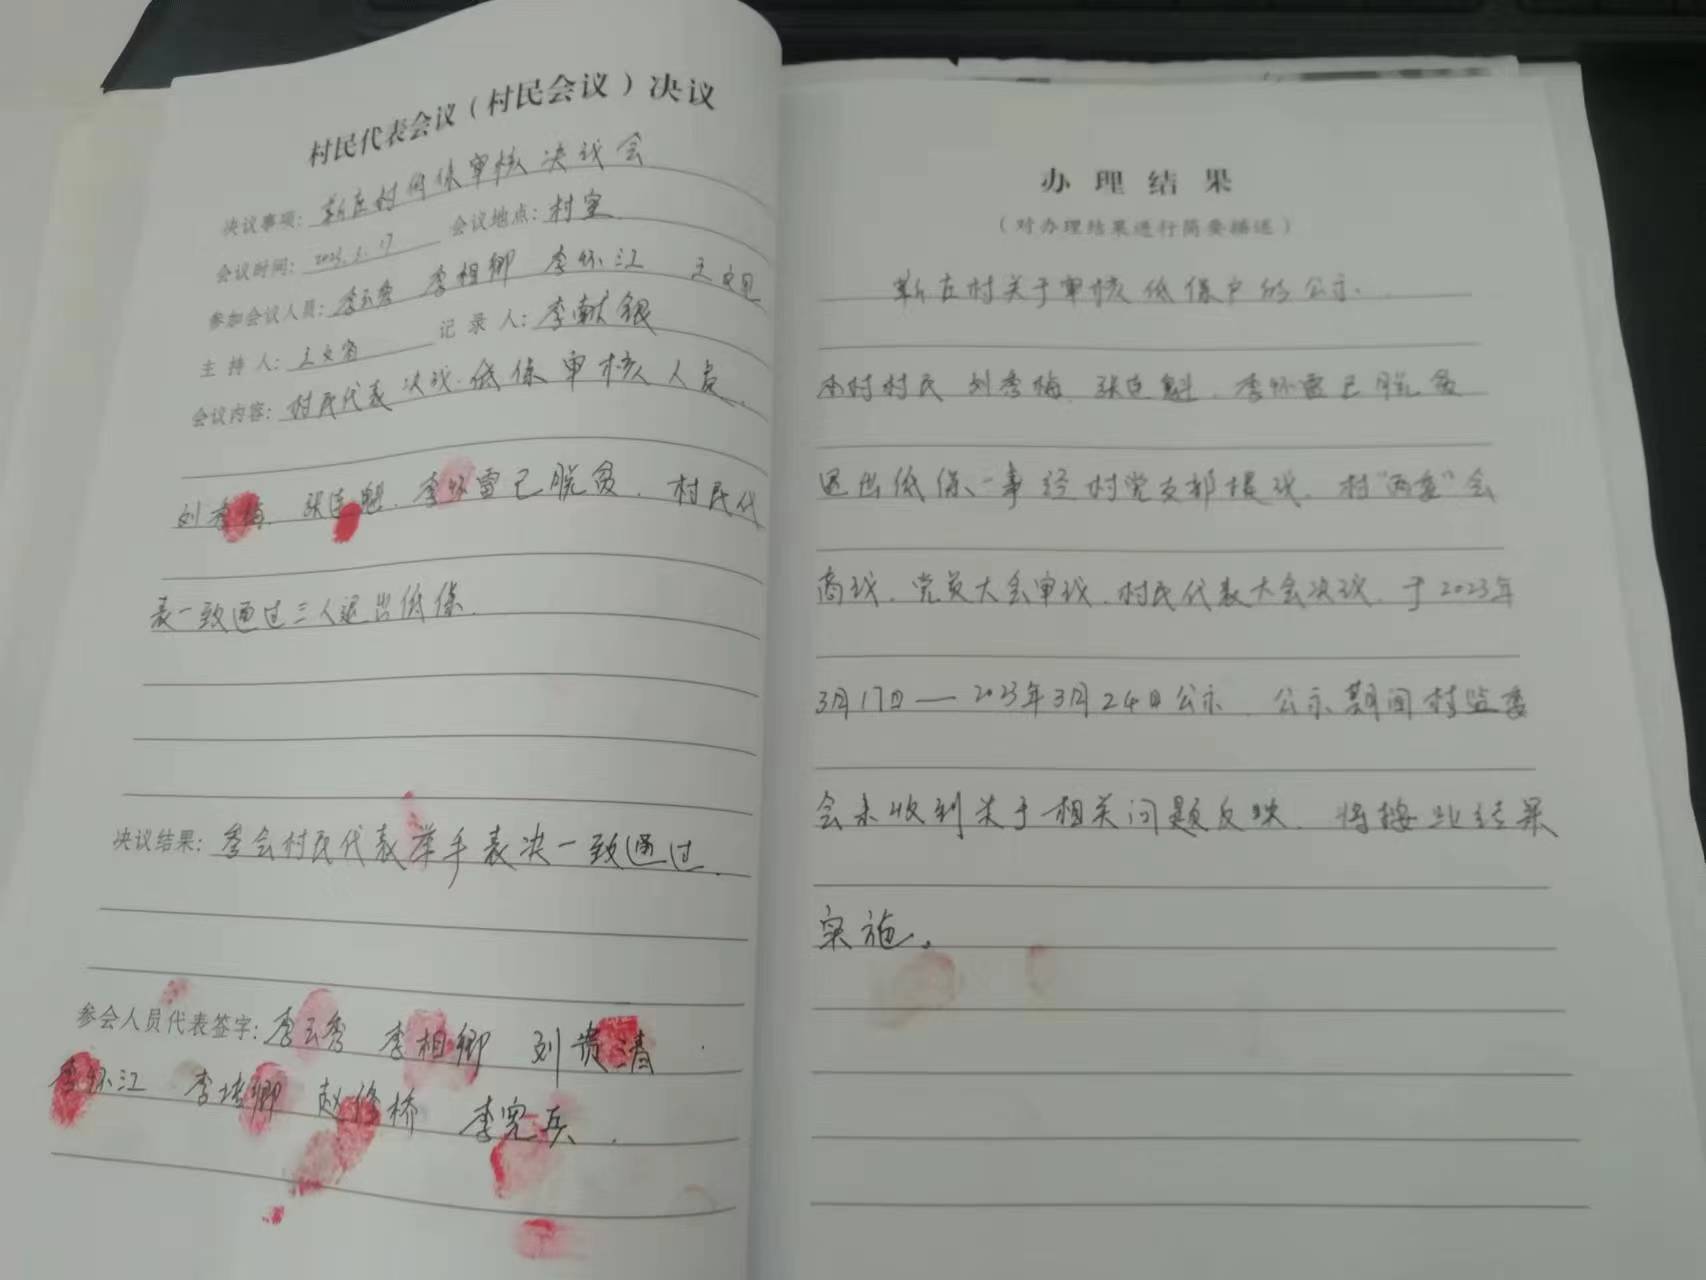 村民代表会议（村民会议）决议
决议事项：新庄村低保审核决议会
会议时间：2023.3.17 会议地点：村室
参加会议人员：李玉秀 李相卿 李怀江 王文
主持人：王文 记录人：李献银
会议内容：村民代表决议.低保审核人员.
刘秀梅、张连魁、李怀雷已脱贫.村民代
表一致通过三人退出低保.
决议结果：参会村民代表举手表决一致通过.
参会人员代表签字：李玉秀 李相卿 刘贵清.
李怀江 李培卿 赵修桥 李宪兵.
办理结果
（对办理结果进行简要描述）
新庄村关于审核低保户的公示.
本村村民 刘秀梅、张连魁、李怀雷已脱贫
退出低保一事经村党支部提议、村“两委”会
商议、党员大会审议、村民代表大会决议、于2023年
3月17日—2023年3月24日公示.公示期间村监委
会未收到关于相关问题反映.将按此结果
实施。